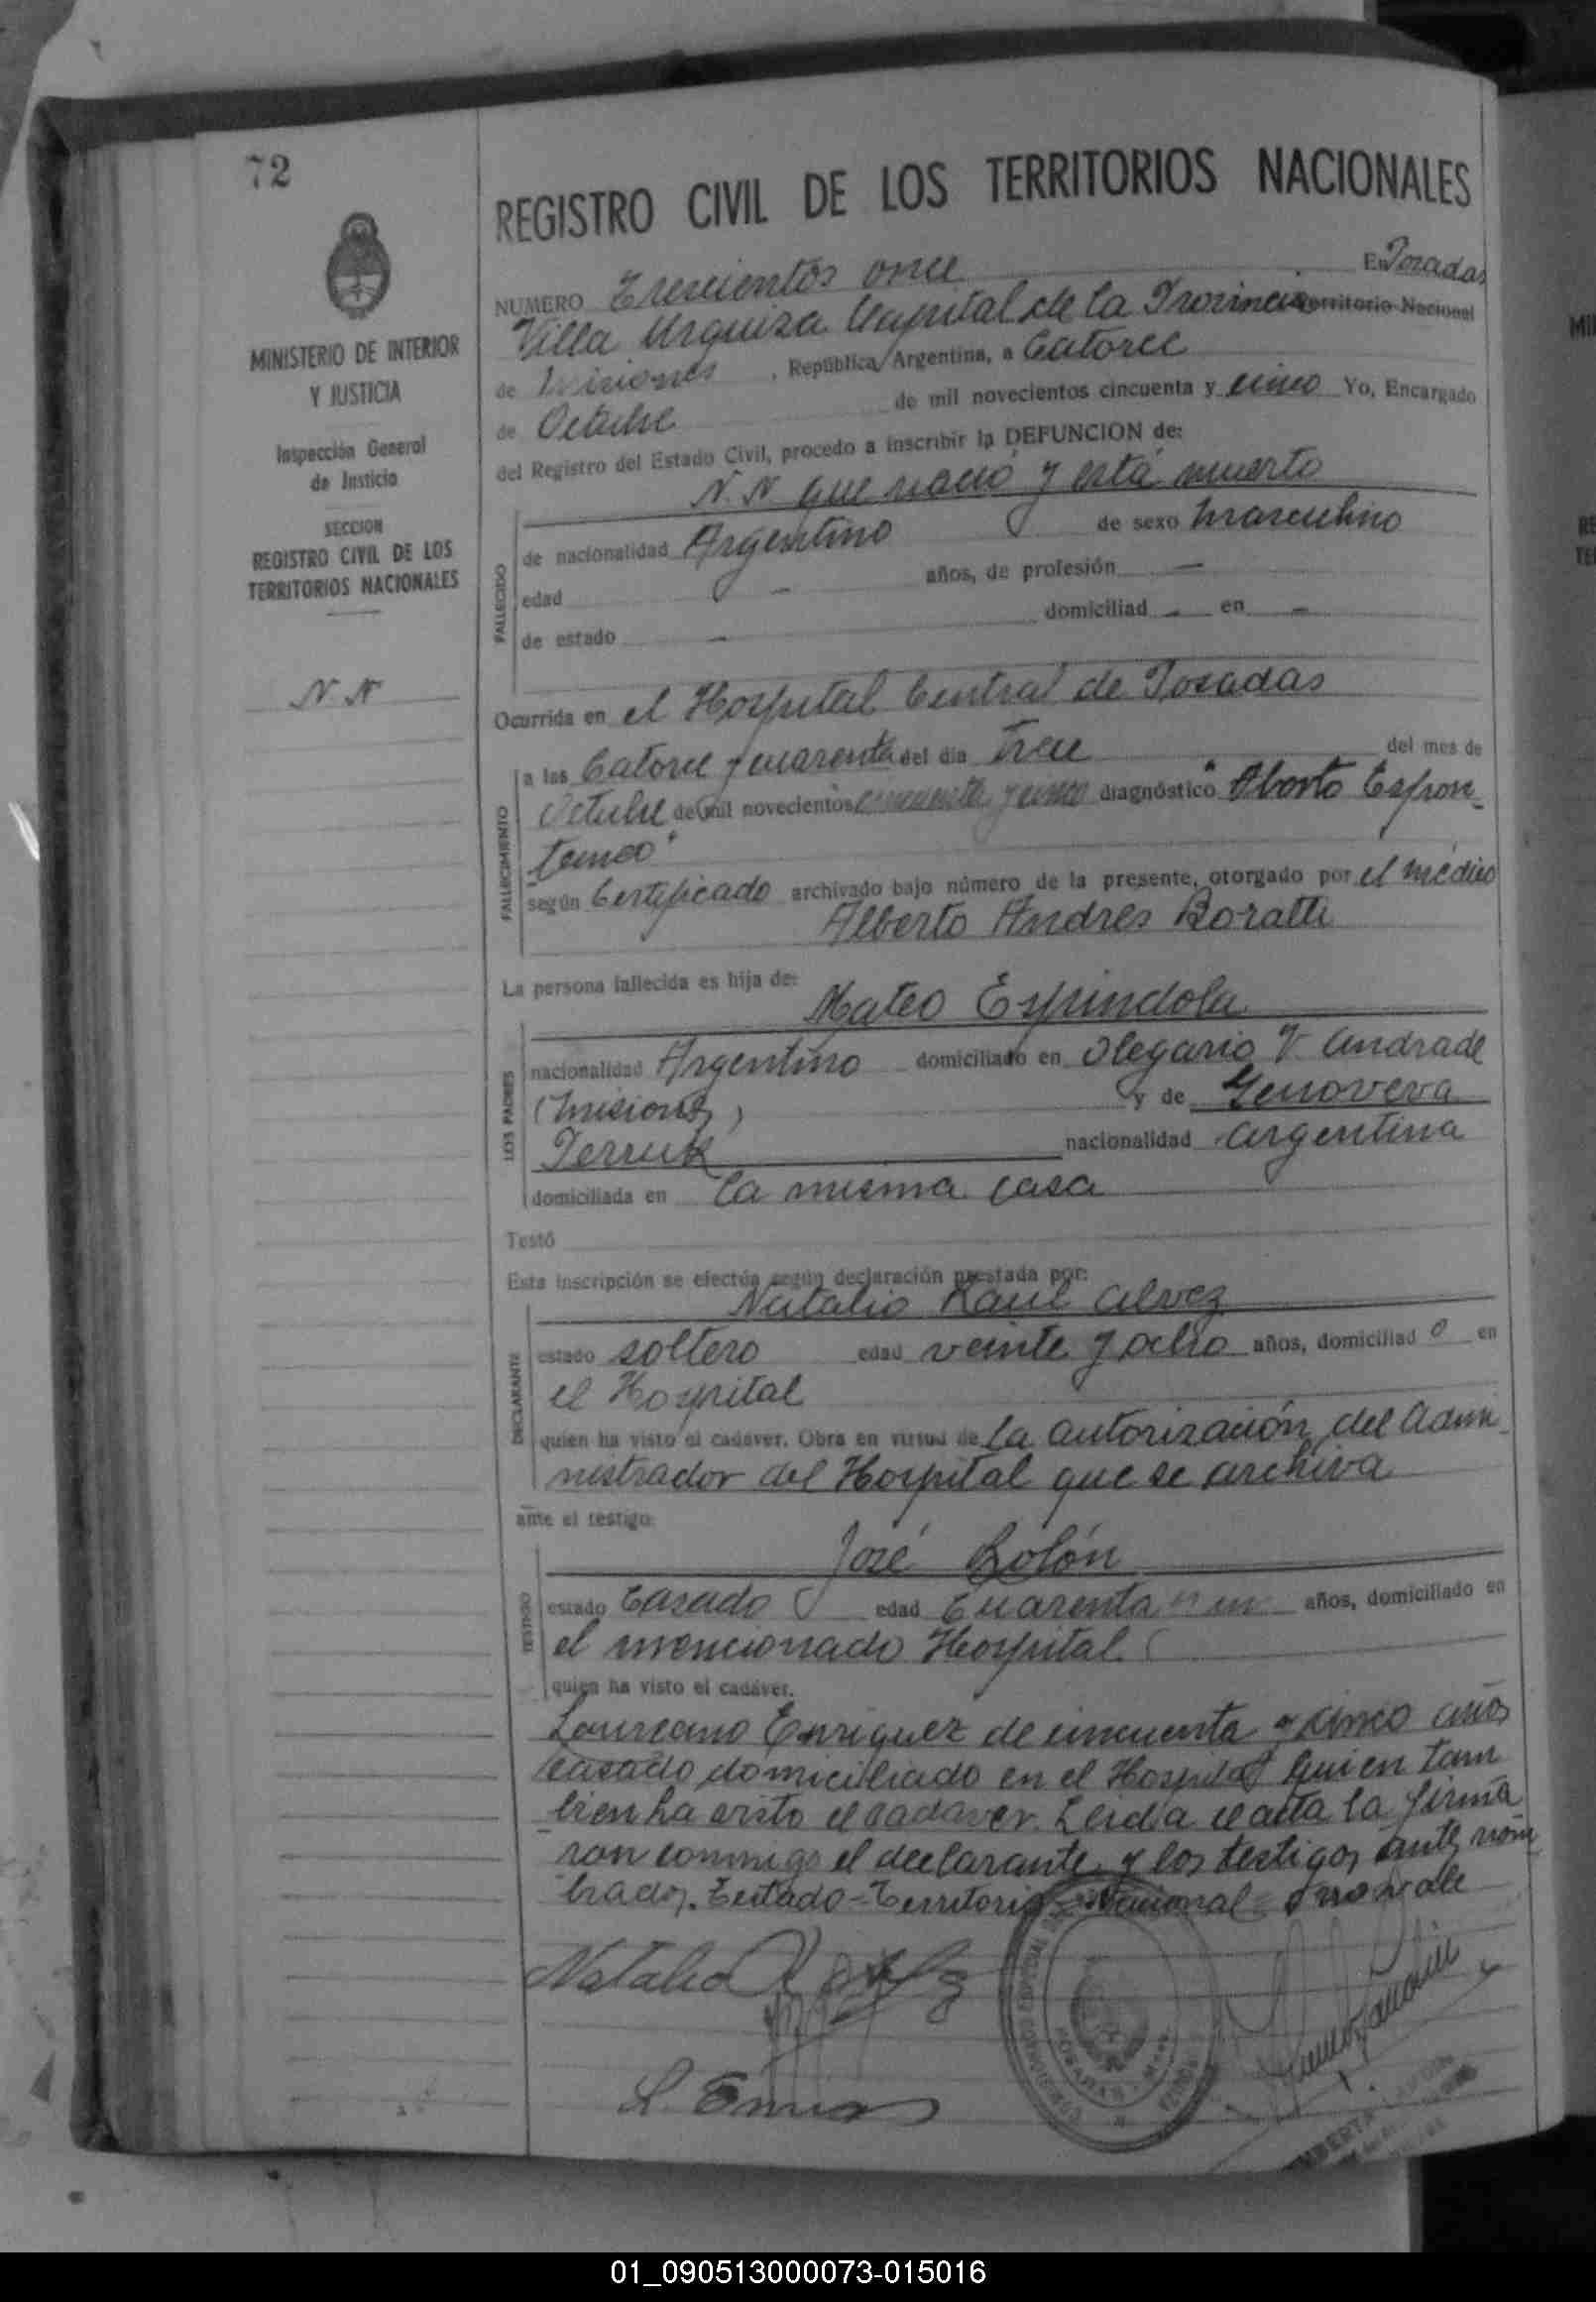 72
MINISTERIO DE INTERIOR
Y JUSTICIA
Inspección General
de Justicia
SECCION
REGISTRO CIVIL DE LOS
TERRITORIOS NACIONALES
N. N
REGISTRO CIVIL DE LOS TERRITORIOS NACIONALES
NUMERO Trescientos once En Posadas
Villa Urquiza Capital de la Provincia Territorio Nacional
de Misiones , República Argentina, a Catorce
de Octubre de mil novecientos cincuenta y cinco Yo, Encargado
del Registro del Estado Civil, procedo a inscribir la DEFUNCION de:
N. N que nació y está muerto
FALLECIDO
de nacionalidad Argentino de sexo masculino
edad - años, de profesión -
de estado - domiciliad - en -
Ocurrida en el Hospital Central de Posadas
FALLECIMIENTO
a las Catorce y cuarenta del dia Trece del mes de
Octubre de mil novecientos cincuenta y cinco diagnóstico "Aborto Espon-
taneo"
según Certificado archivado bajo número de la presente, otorgado por el médico
Alberto Andrés Boratti
La persona fallecida es hija de:
Mateo Espindola
LOS PADRES
nacionalidad Argentino domiciliado en Olegario V Andrade
(Misiones) y de Genoveva
Perruk nacionalidad argentina
domiciliada en la misma casa
Testó
Esta inscripción se efectúa según declaración prestada por:
Natalio Raul alvez
DECLARANTE
estado soltero edad veinte y ocho años, domiciliad o en
el Hospital
quien ha visto el cadáver. Obra en virtud de la autorización del admi-
nistrador del Hospital que se archiva
ante el testigo:
José Bolón
TESTIGO
estado Casado edad Cuarenta años, domiciliado en
el mencionado Hospital
quien ha visto el cadáver.
Laureano Enriquez de cincuenta y cinco años
casado domiciliado en el Hospital quien tam
bien ha visto el cadaver. Leida el acta la firma
ron conmigo el declarante y los testigos antes nom
brados. Testado = Territorio Nacional = no vale
Natalio R
01_090513000073-015016